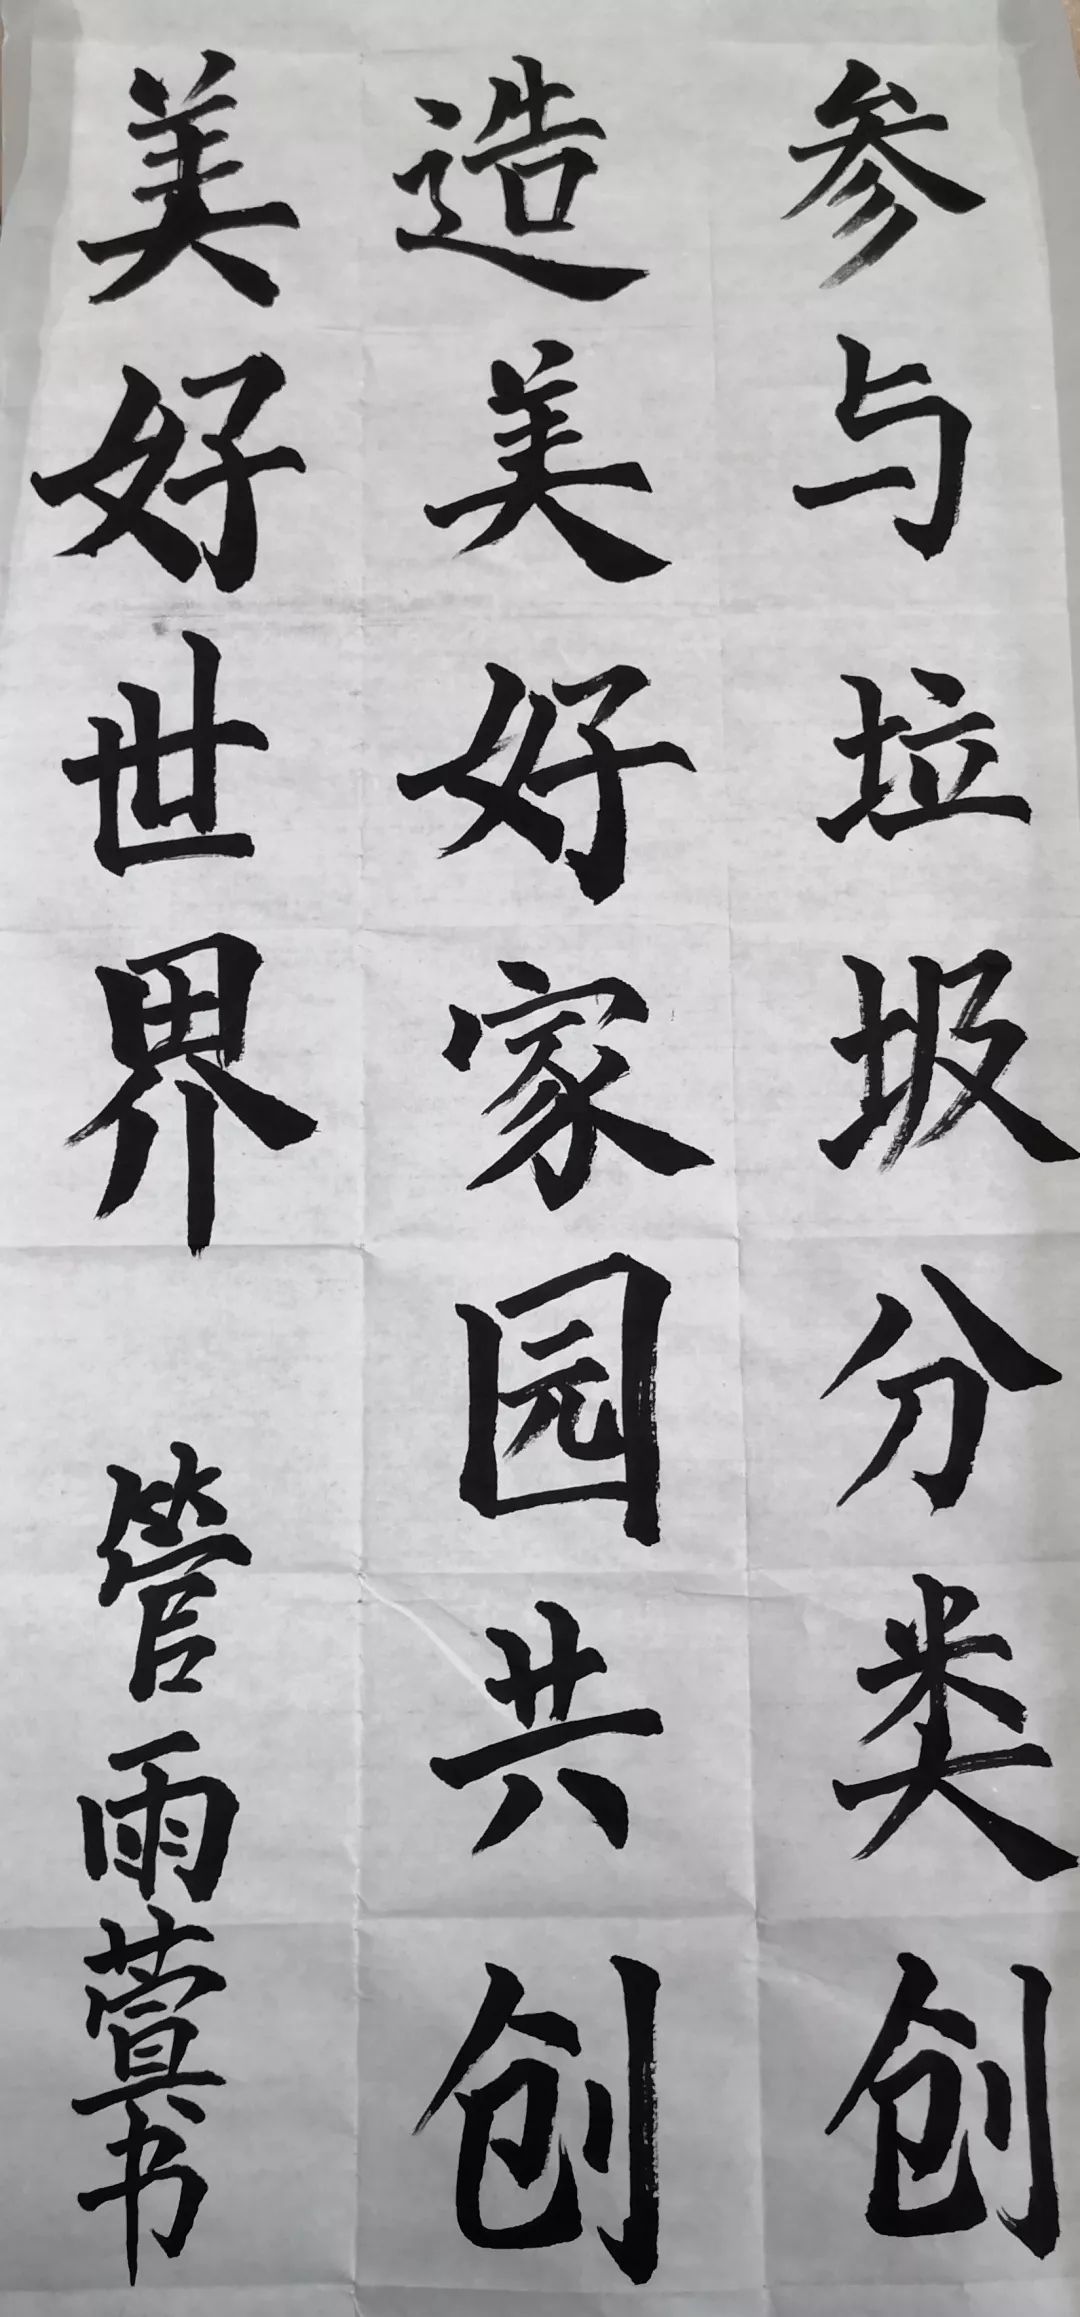 参与垃圾分类创
造美好家园共创
美好世界
管雨萱书